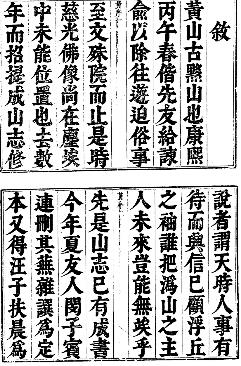 敘
黃山古黟山也康熙
丙午春偕先友給諫
俞以除往遊迫俗事
至文殊院而止是時
慈光佛像尚在塵
中未能位置也去數
年而招提成山志修
說者謂天時人事有
待而興信已顧浮丘
之袖誰把溈山之主
人未來豈能無竢乎
先是山志已有成書
今年夏友人閔子賓
連刪其蕪雜譔為定
本又得汪子扶晨為